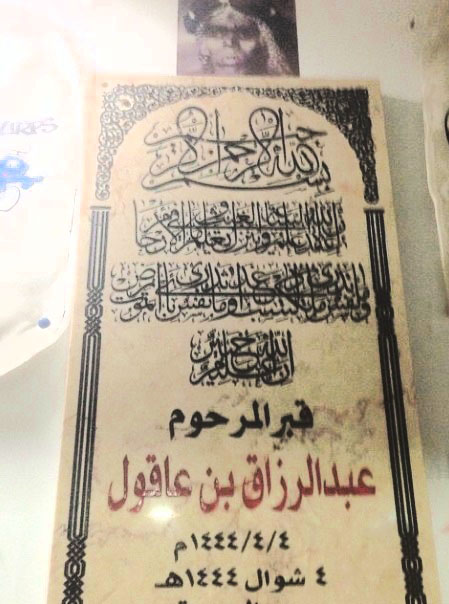 بسم الله الرحمن الرحيم
إن الله عنده علم الساعة وينزل الغيث ويعلم ما في الأرحام
وما تدري نفس ماذا تكسب غدا وما تدري نفس بأي أرض تموت
إن الله عليم خبير
قبر المرحوم
عبدالرزاق بن عاقول
٤/٤/١٤٤٤م
٤ شوال ١٤٤٤هـ